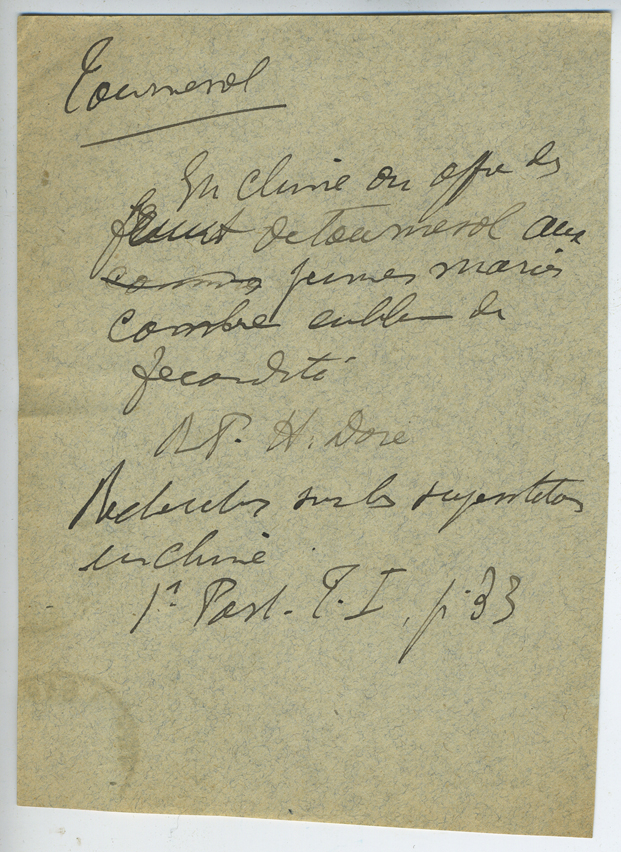 Tournesol
En Chine on offre des
de tournesol aux
jeunes mariés
comme emblème de
fecondité
R.P. H. Doré
Recherches sur les superstitions
en Chine
1e Part. T. I, p. 33